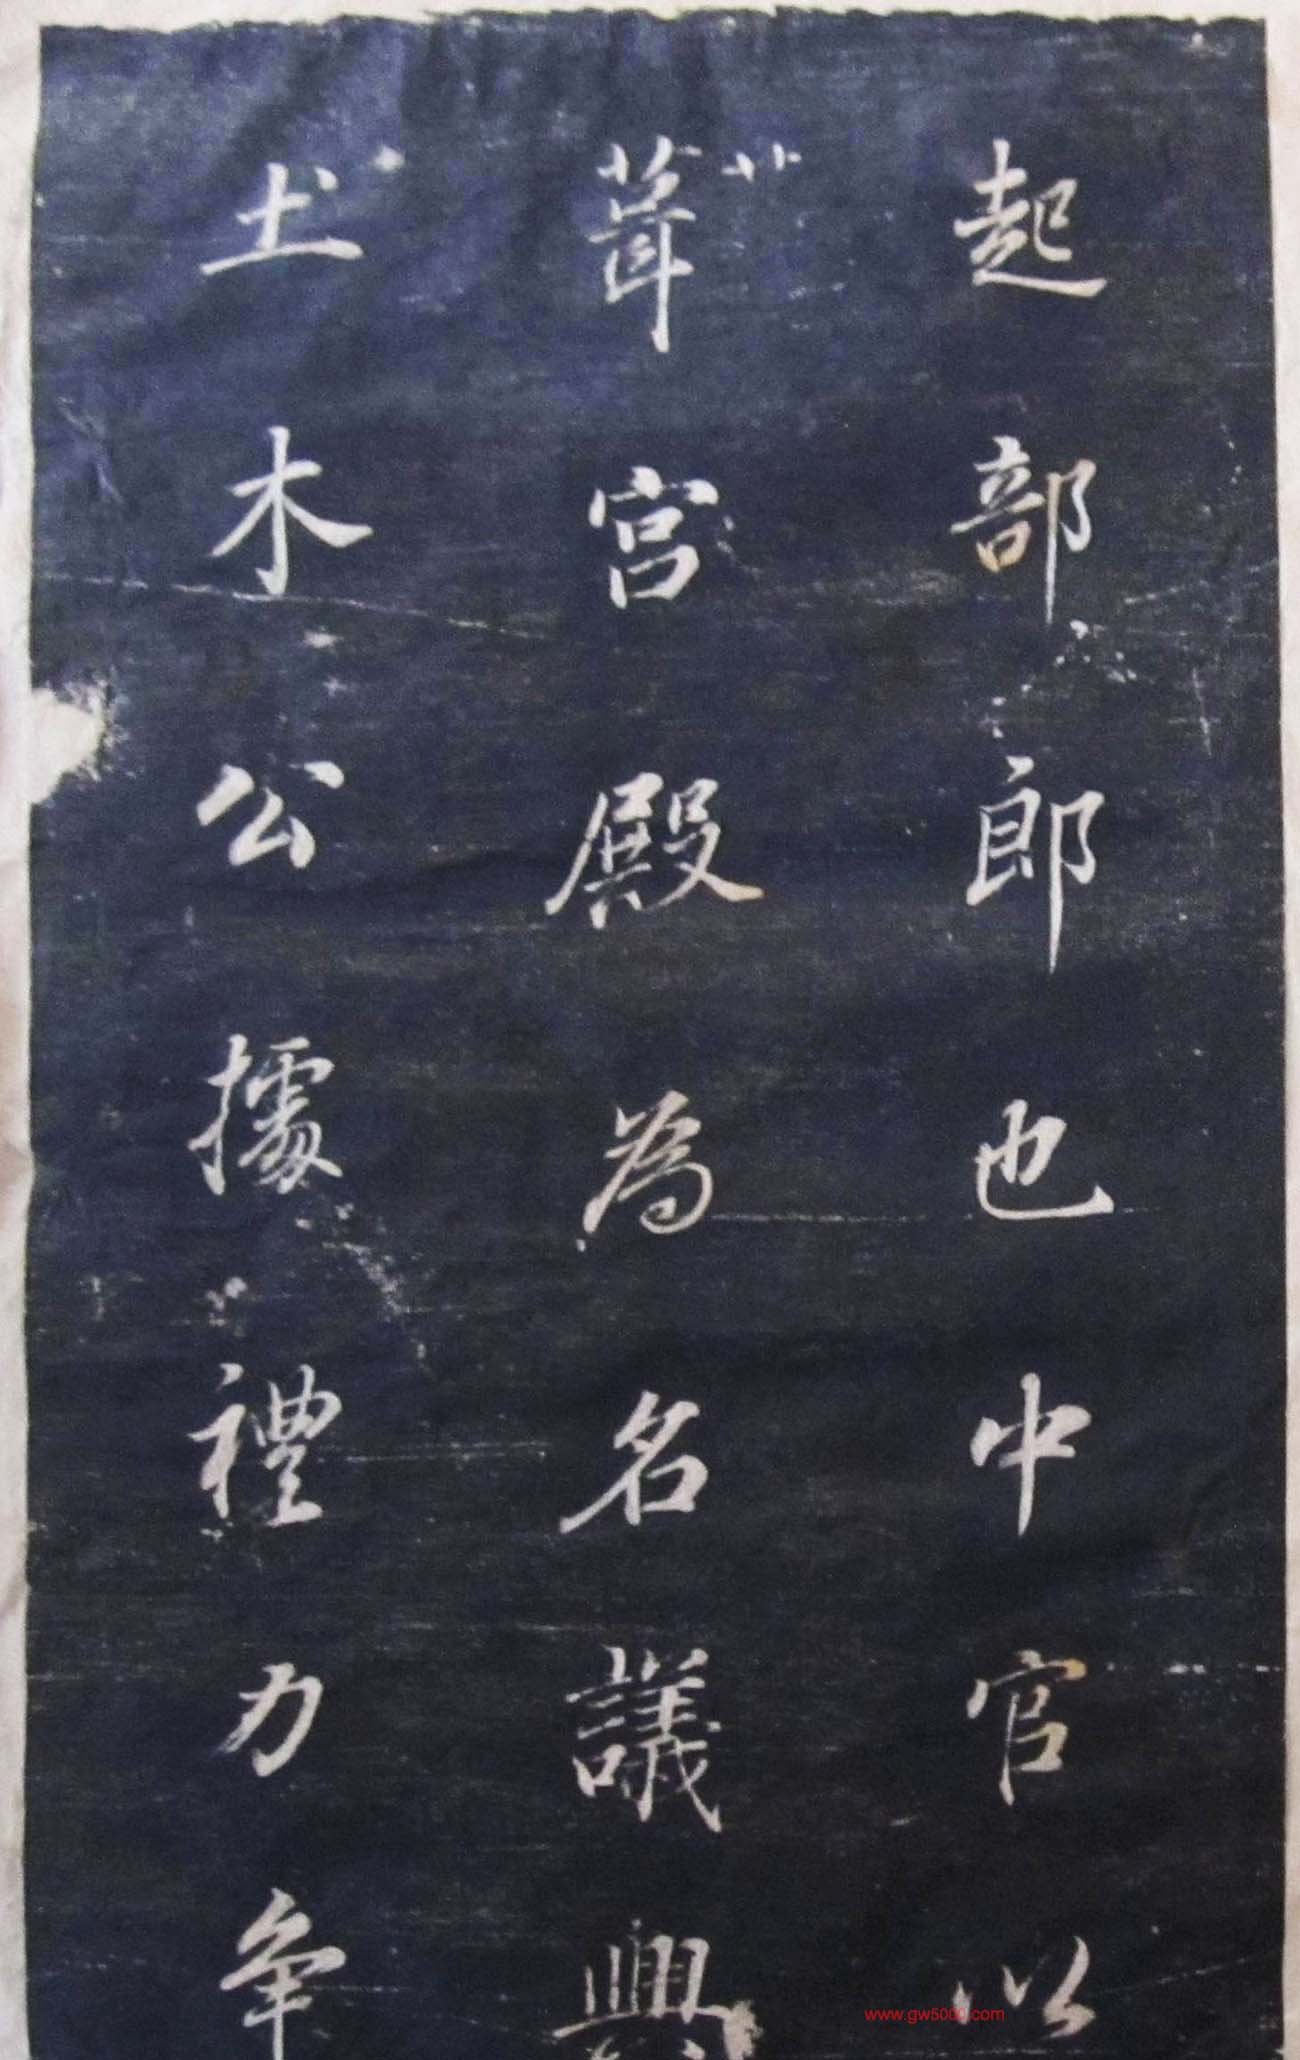 起部郎也中官以
葺宫殿為名議興
土木公據禮力争
www.gw5000.com